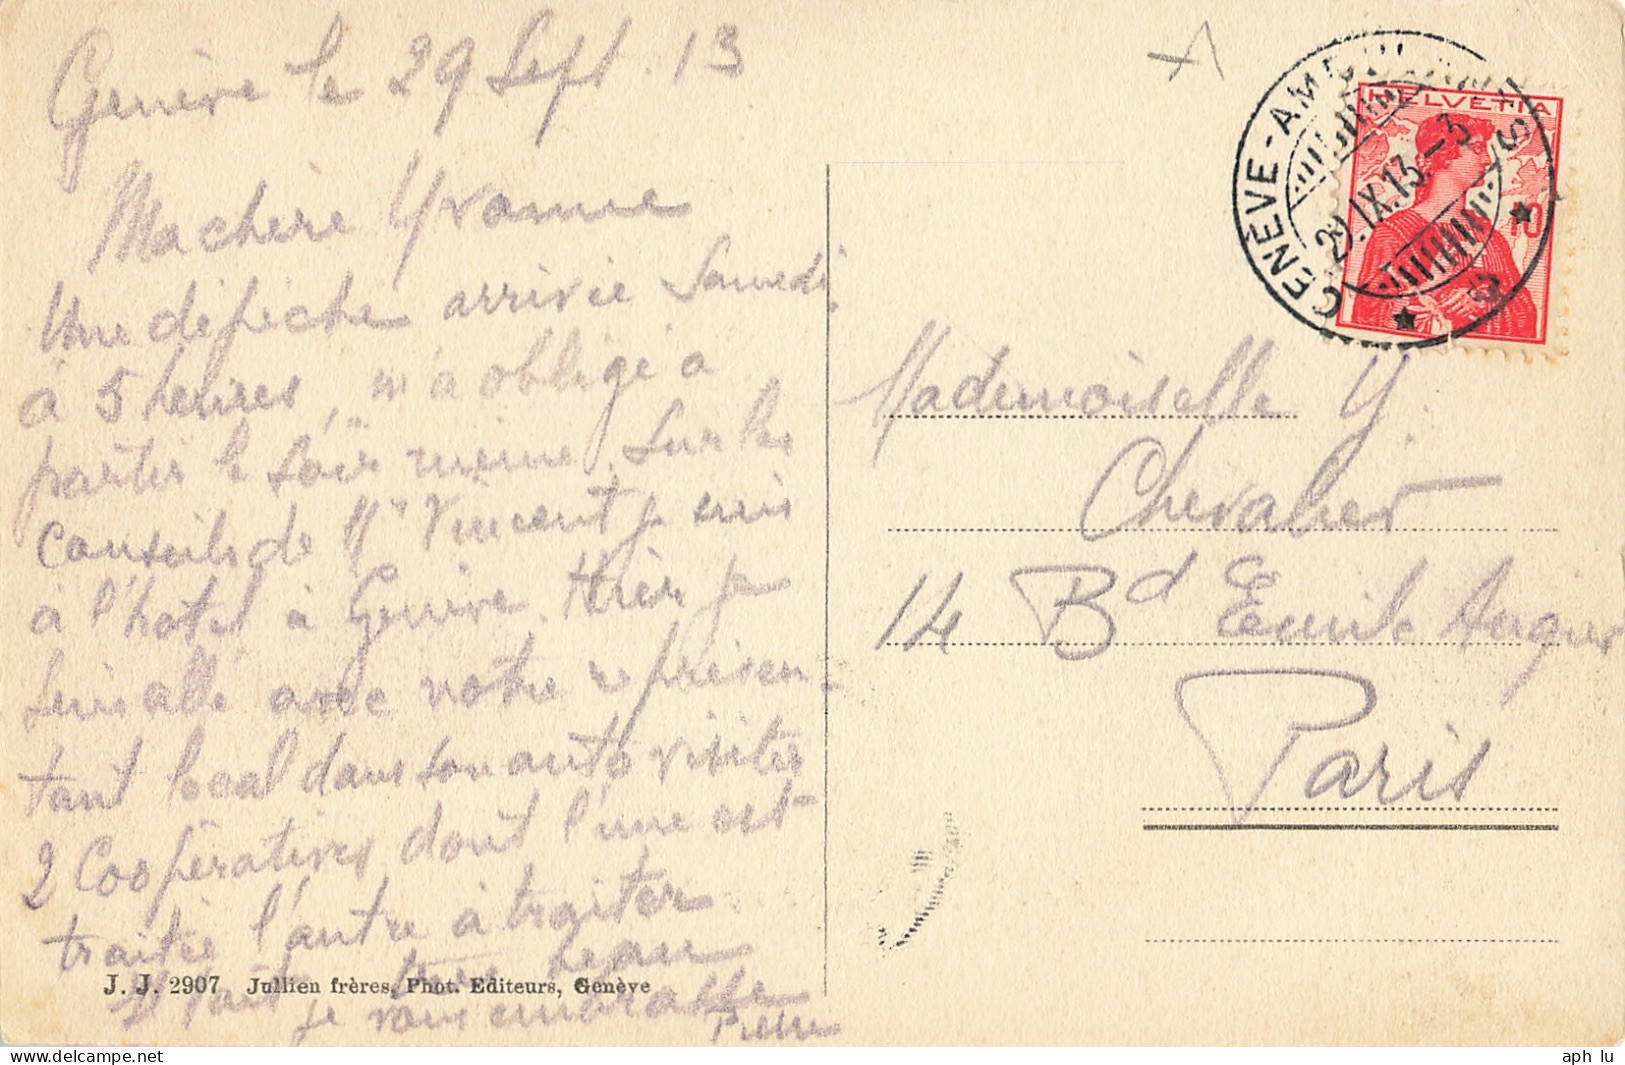 Genève le 29 Sept. 13
Ma chère Yvonne
Une dépêche arrivée Samedi
à 5 heures, m'a obligé à
partir le soir même. Sur les
conseils de Mr Vincent je suis
à l'hotel à Genève. Hier je
suis allé avec notre représen-
tant local dans son auto visiter
2 Coopératives dont l'une est
traitée l'autre à traiter
Il fait très beau
Je vous embrasse
Pierre
J. J. 2907 Jullien frères, Phot. Editeurs, Genève
HELVETIA
10
GENÈVE
29.IX.13.-3
Mademoiselle Y.
Chevalier
14 Bd Emile Augier
Paris
aph lu